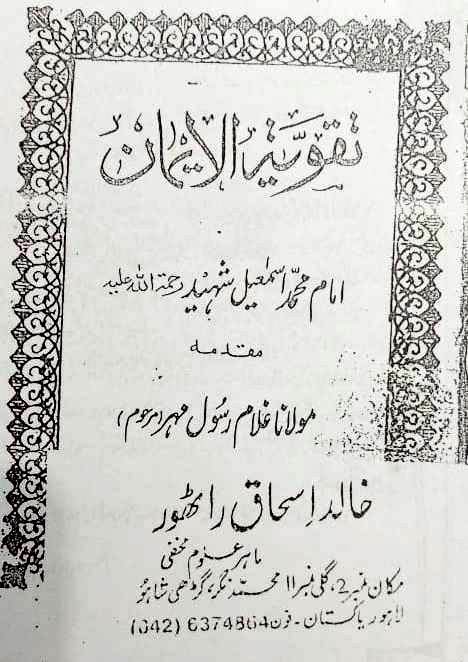 تقویۃ الایمان
امام محمد اسمٰعیل شہید رحمۃ اللہ علیہ
مقدمہ
مولانا غلام رسول مہر مرحوم
خالد اسحاق راٹھور
ماہر علوم مخفی
مکان نمبر 2، گلی نمبر 11 محمد نگر، گڑھی شاہو
لاہور پاکستان - فون 6374864 (042)